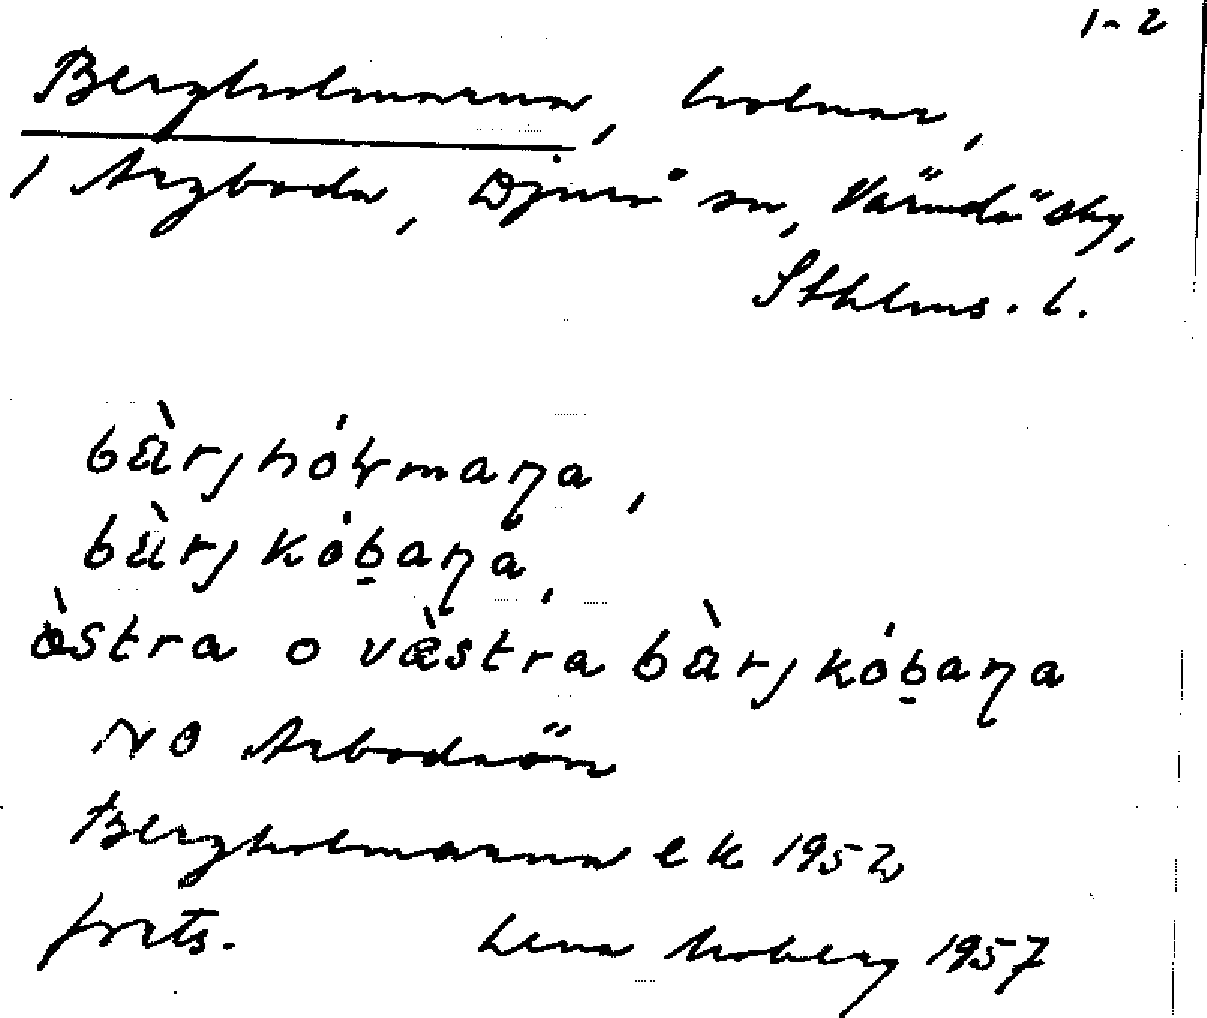 1-2
Bergholmarna, holmar,
/ Argboda, Djurö sn, Värmdö skg,
Sthlms. l.
bàrjhóɫmaɳa,
bàrjkób̲aɳa,
ö̀stra o væ̀stra bàrjkób̲aɳa
NO Arbodaön
Bergholmarna ek 1952
forts. Lena Moberg 1957